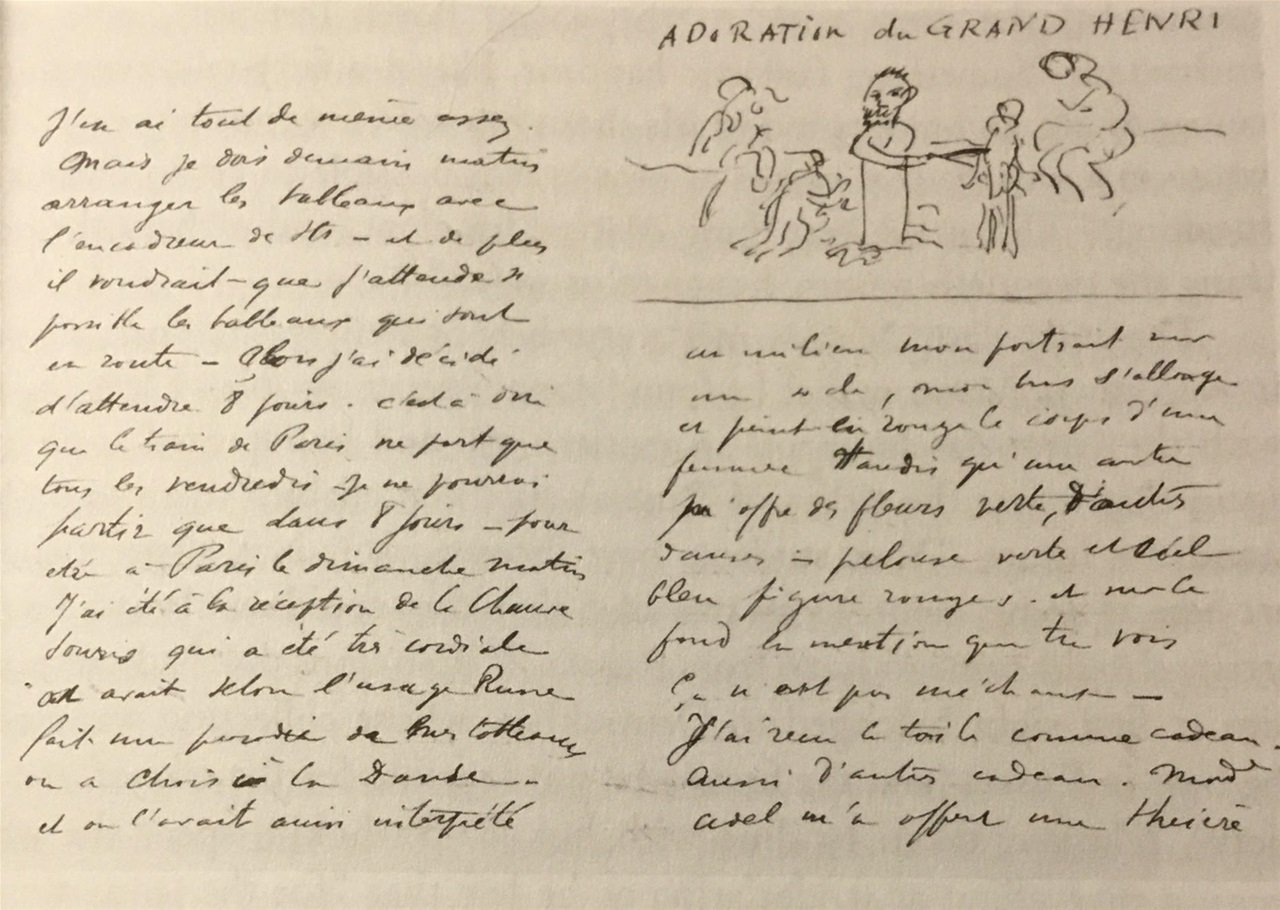 J'en ai tout de même assez.
Mais je dois demain matin
arranger les tableaux avec
l'encadreur de Sts – et de plus
il voudrait que j'attende si
possible les tableaux qui sont
en route – Alors j'ai décidé
d'attendre 8 jours. c'est à dire
que le train de Paris ne part que
tous les vendredis – je ne pourrai
partir que dans 8 jours – pour
être à Paris le dimanche matin
J'ai été à la réception de la Chauve
Souris qui a été très cordiale
on avait selon l'usage Russe
fait une parodie de mes tableaux
on a choisi la Danse –
et on l'avait ainsi interprété
ADORATION du GRAND HENRI
au milieu mon portrait sur
un socle, mon bras s'allonge
et peint en rouge le corps d'une
femme tandis qu'une autre
m'offre des fleurs verte, d'autres
danses – pelouse verte et ciel
bleu figure rouges. et sur le
fond la mention que tu vois
Ça n'est pas méchant –
J'ai reçu la toile comme cadeau.
Aussi d'autres cadeau.
m'a offert une théière